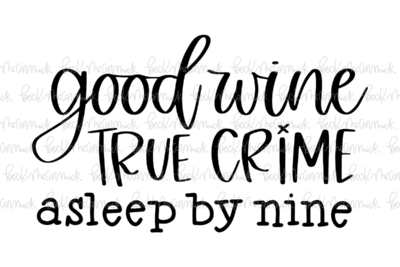 good wine
TRUE CRIME
asleep by nine